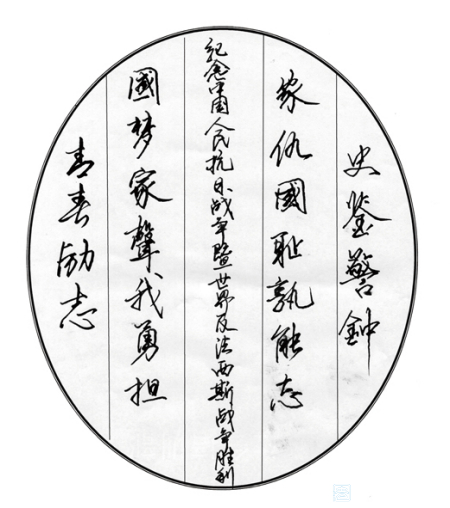 史鉴警鈡
家仇國耻孰能忘
纪念中国人民抗日战争暨世界反法西斯战争胜利
國梦家聲我勇担
青春励志